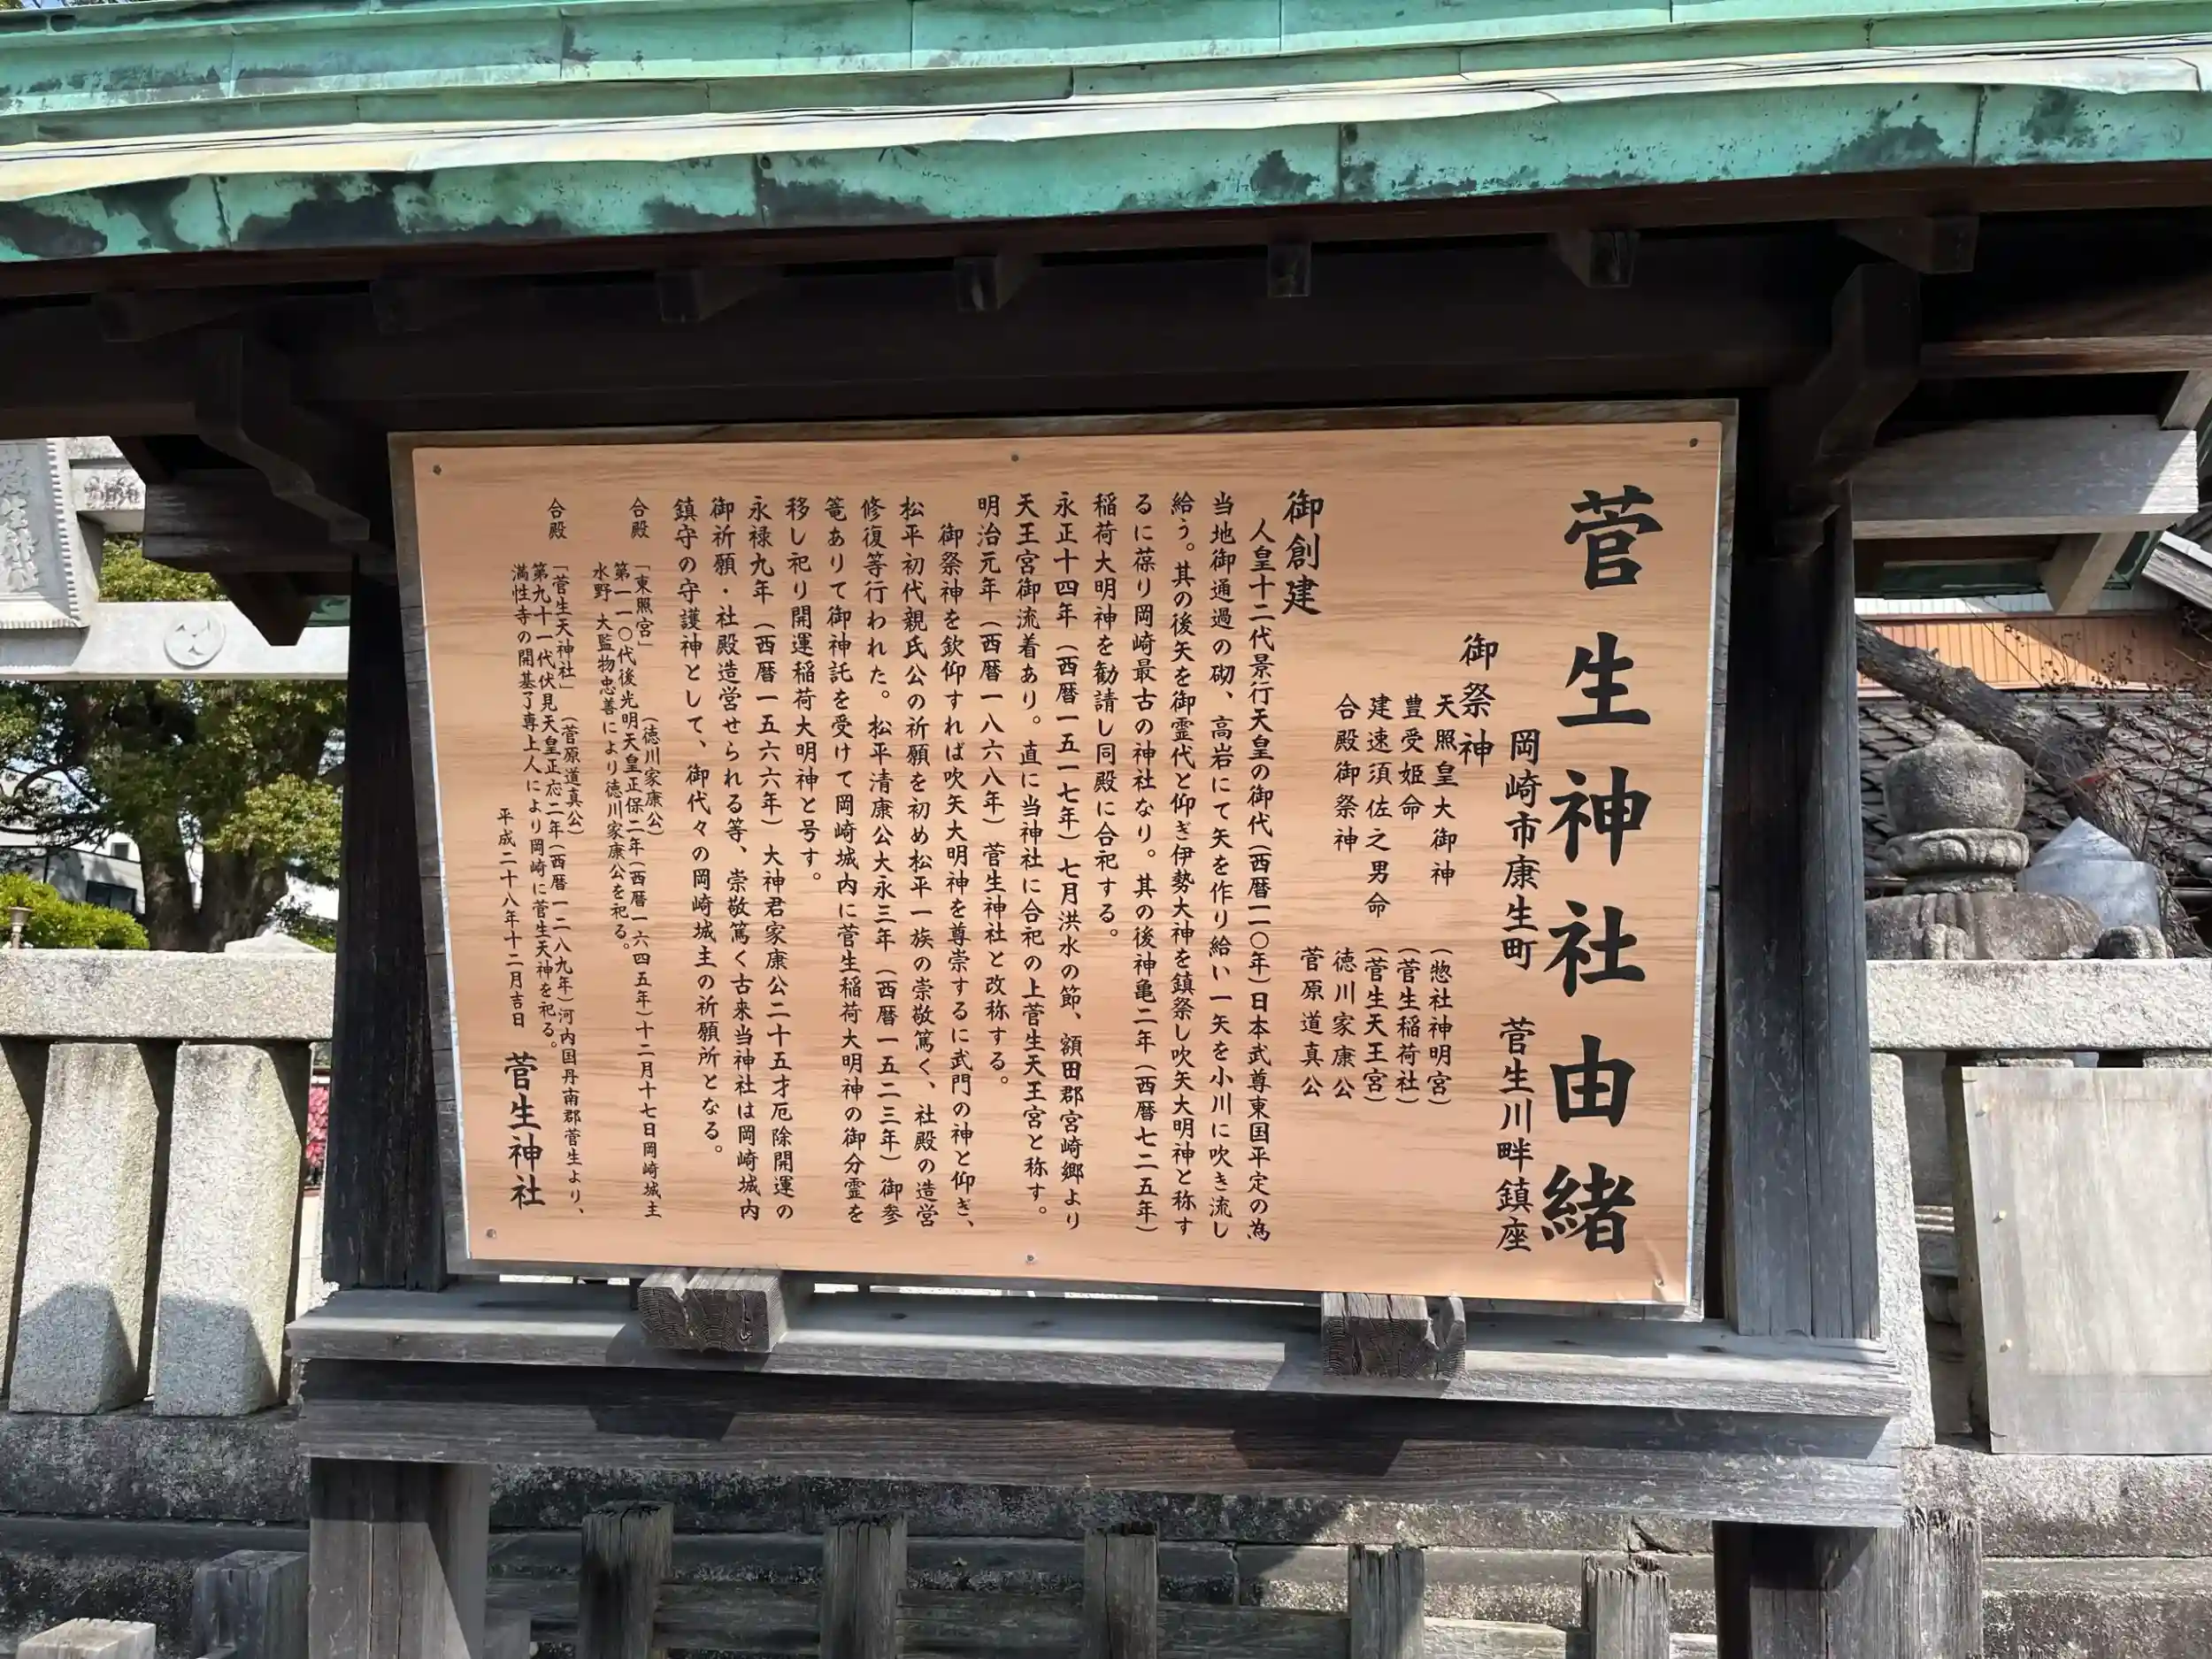 菅生神社由緒
岡崎市康生町　菅生川畔鎮座
御祭神
天照皇大御神　（惣社神明宮）
豊受姫命　（菅生稲荷社）
建速須佐之男命　（菅生天王宮）
合殿御祭神　徳川家康公
菅原道真公
御創建
人皇十二代景行天皇の御代（西暦一一〇年）日本武尊東国平定の為
当地御通過の砌、高岩にて矢を作り給い一矢を小川に吹き流し
給う。其の後矢を御霊代と仰ぎ伊勢大神を鎮祭し吹矢大明神と称す
るに葆り岡崎最古の神社なり。其の後神亀二年（西暦七二五年）
稲荷大明神を勧請し同殿に合祀する。
永正十四年（西暦一五一七年）七月洪水の節、額田郡宮崎郷より
天王宮御流着あり。直に当神社に合祀の上菅生天王宮と称す。
明治元年（西暦一八六八年）菅生神社と改称する。
御祭神を欽仰すれば吹矢大明神を尊崇するに武門の神と仰ぎ、
松平初代親氏公の祈願を初め松平一族の崇敬篤く、社殿の造営
修復等行われた。松平清康公大永三年（西暦一五二三年）御参
篭ありて御神託を受けて岡崎城内に菅生稲荷大明神の御分霊を
移し祀り開運稲荷大明神と号す。
永禄九年（西暦一五六六年）大神君家康公二十五才厄除開運の
御祈願・社殿造営せられる等、崇敬篤く古来当神社は岡崎城内
鎮守の守護神として、御代々の岡崎城主の祈願所となる。
合殿　「東照宮」　（徳川家康公）
第一一〇代後光明天皇正保二年（西暦一六四五年）十二月十七日岡崎城主
水野　大監物忠善により徳川家康公を祀る。
合殿　「菅生天神社」　（菅原道真公）
第九十一代伏見天皇正応二年（西暦一二八九年）河内国丹南郡菅生より、
満性寺の開基了専上人により岡崎に菅生天神を祀る。
平成二十八年十二月吉日　菅生神社